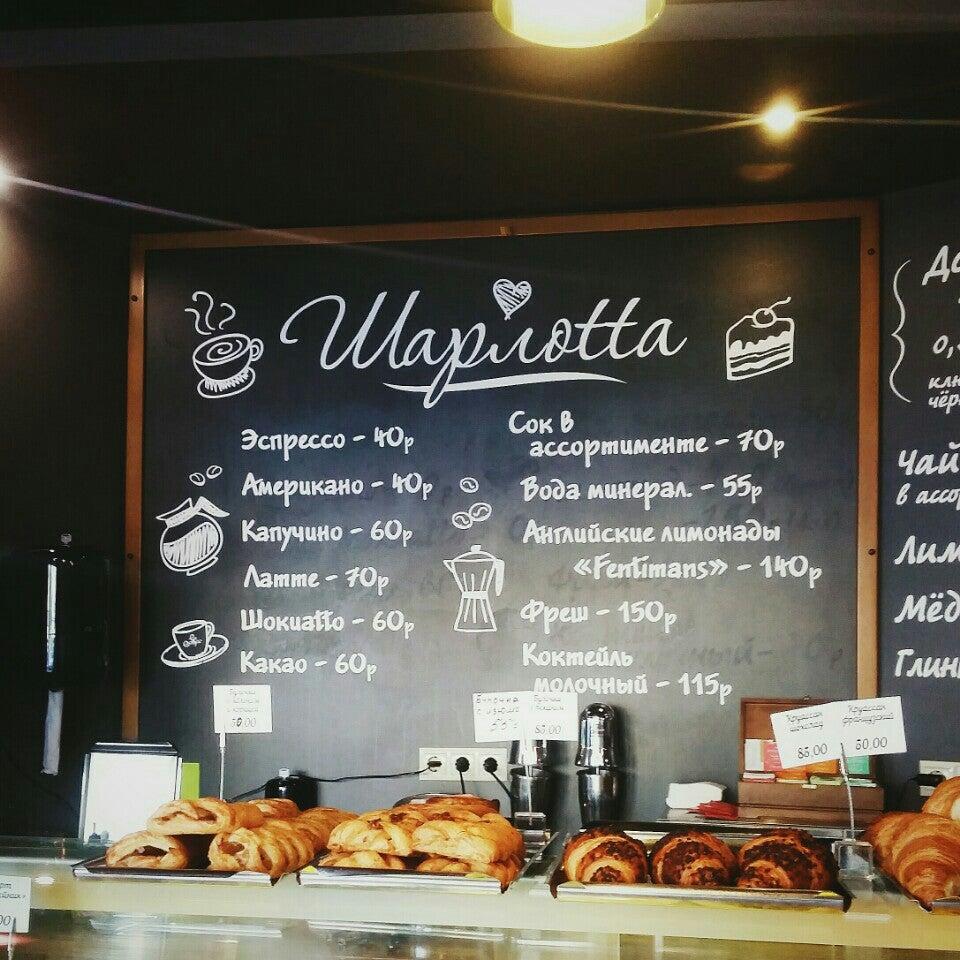 Шарлотта
Эспрессо - 40р
Американо - 40р
Капучино - 60р
Латте - 70р
Шокиatto - 60р
Какао - 60р
Сок в
ассортименте - 70р
Вода минерал. - 55р
Английские лимонады
«Fentimans» - 140р
Фреш - 150р
Коктейль
молочный - 115р
Чай
Булочка
с изюмом
85,00
Круассан
шоколад
85,00
Круассан
французский
50,00
50,00